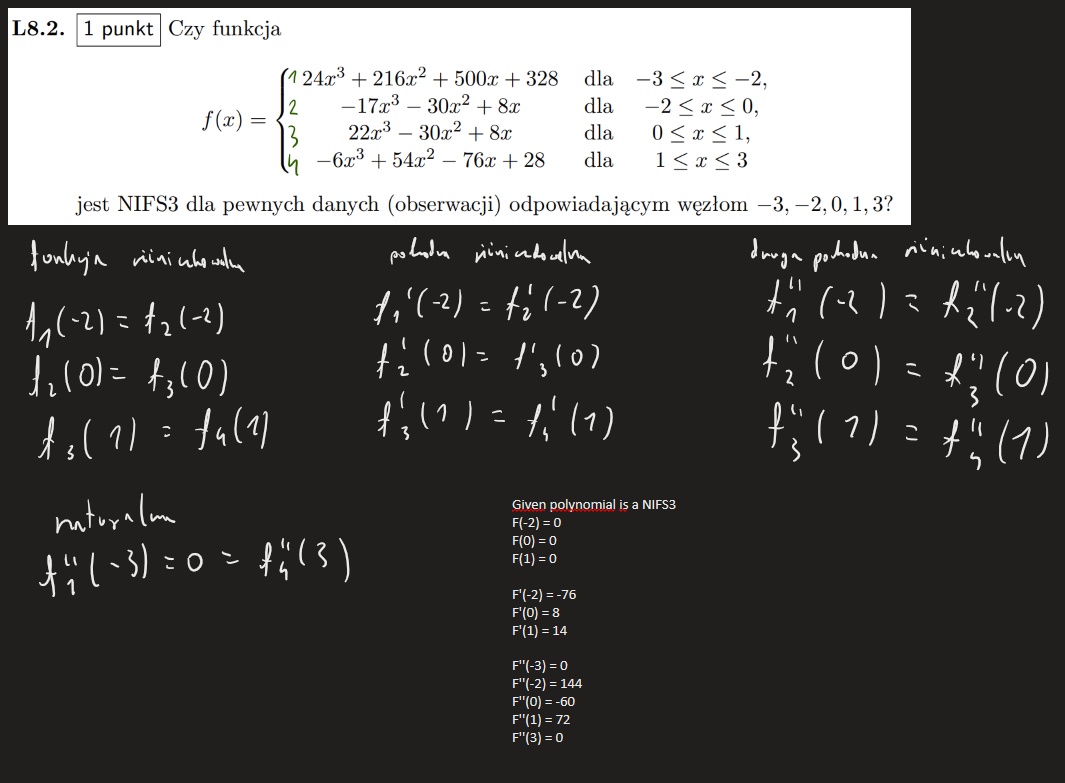 L8.2. 1 punkt Czy funkcja
1 24x³ + 216x² + 500x + 328 dla −3 ≤ x ≤ −2,
2 −17x³ − 30x² + 8x dla −2 ≤ x ≤ 0,
f(x) =
3 22x³ − 30x² + 8x dla 0 ≤ x ≤ 1,
4 −6x³ + 54x² − 76x + 28 dla 1 ≤ x ≤ 3
jest NIFS3 dla pewnych danych (obserwacji) odpowiadającym węzłom −3, −2, 0, 1, 3?
funkcja
f₁(-2) = f₂(-2)
f₂(0) = f₃(0)
f₃(1) = f₄(1)
pochodna
f₁'(-2) = f₂'(-2)
f₂'(0) = f'₃(0)
f₃'(1) = f₄'(1)
druga pochodna
f₁''(-2) = f₂''(-2)
f₂''(0) = f₃''(0)
f₃''(1) = f₄''(1)
naturalna
f₁''(-3) = 0 = f₄''(3)
Given polynomial is a NIFS3
F(-2) = 0
F(0) = 0
F(1) = 0
F'(-2) = -76
F'(0) = 8
F'(1) = 14
F"(-3) = 0
F"(-2) = 144
F"(0) = -60
F"(1) = 72
F"(3) = 0